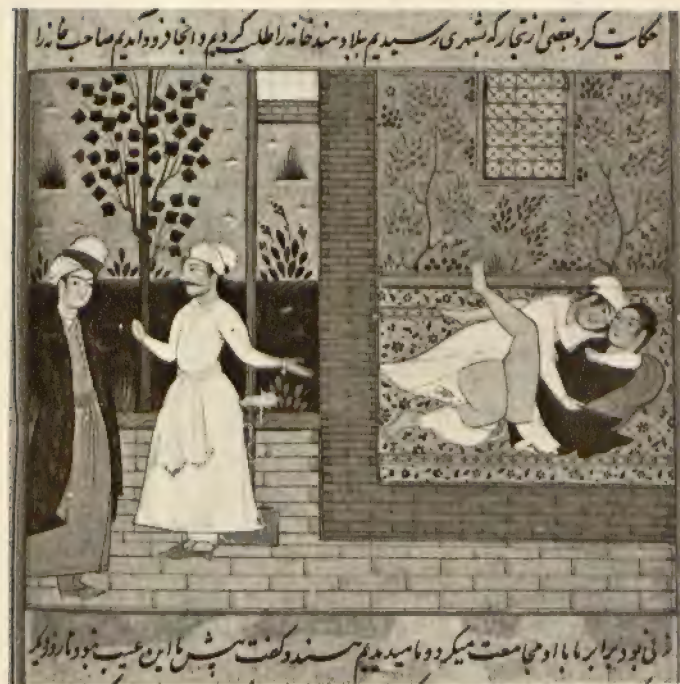 حکایت کرد بعضی از تجار که بشهری رسیدیم ببلاد هند خانه را طلب کردیم و آنجا فرود آمدیم صاحب خانه را
زنی بود برابر ما با او مجامعت میکرد و ما میدیدیم و گفت پیش ما این عیب نبود تا روز دیگر